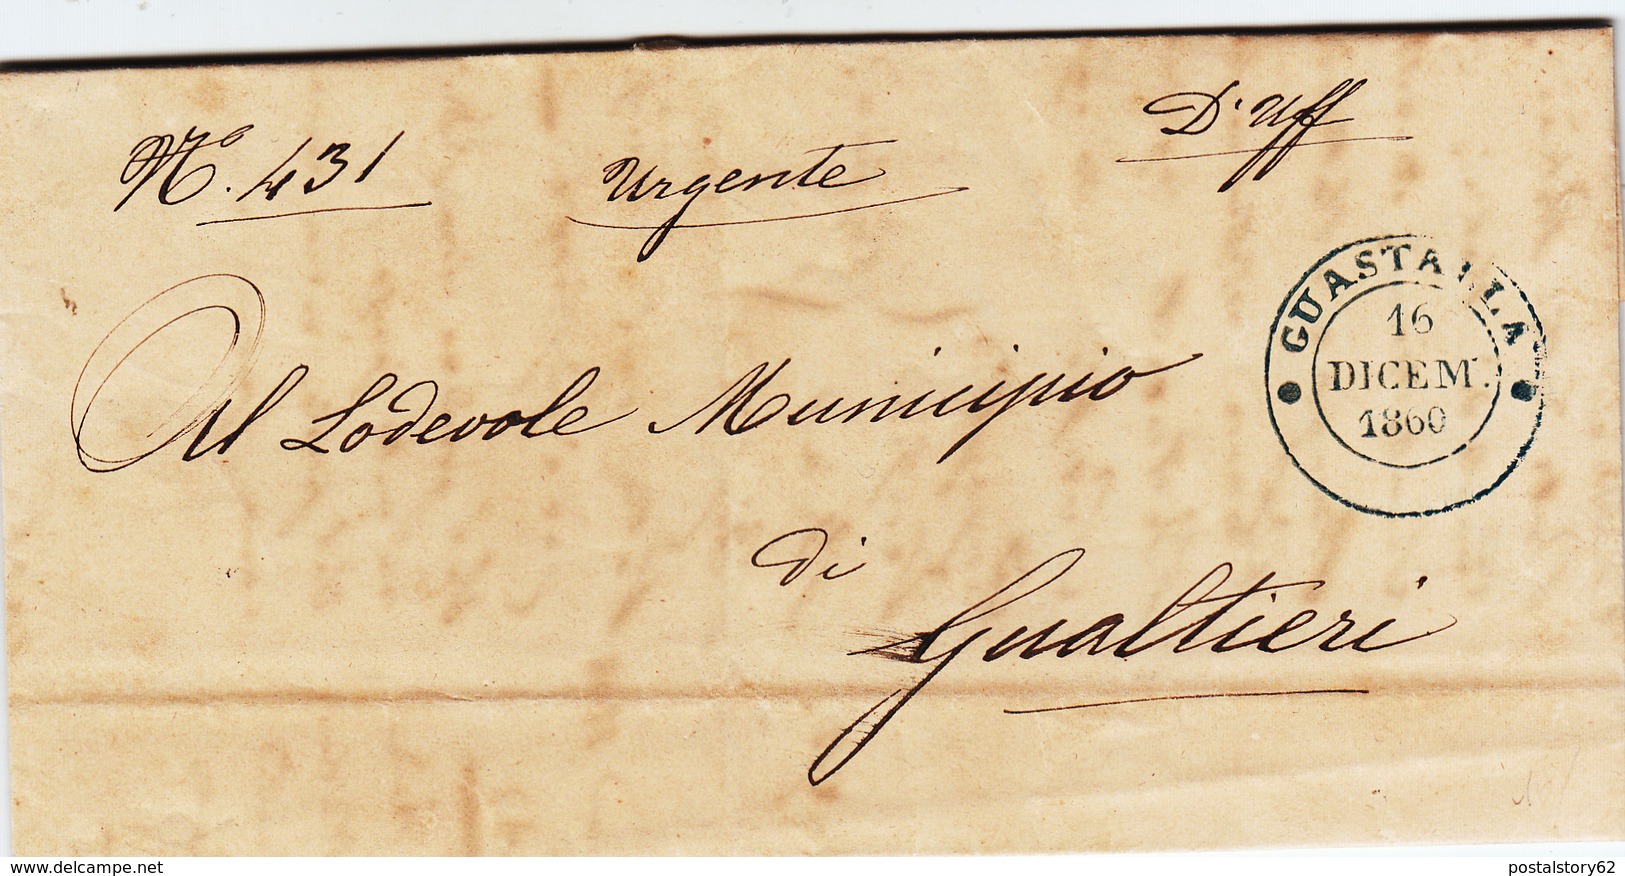 N.º 431
Urgente
D'Uff
GUASTALLA
16
DICEM.
1860
Al Lodevole Municipio
di
Gualtieri
www.delcampe.net
postalstory62